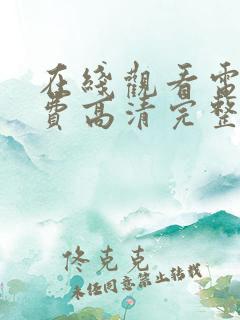 在綫觀看電
費高清完整
佟克克
未经同意禁止转载